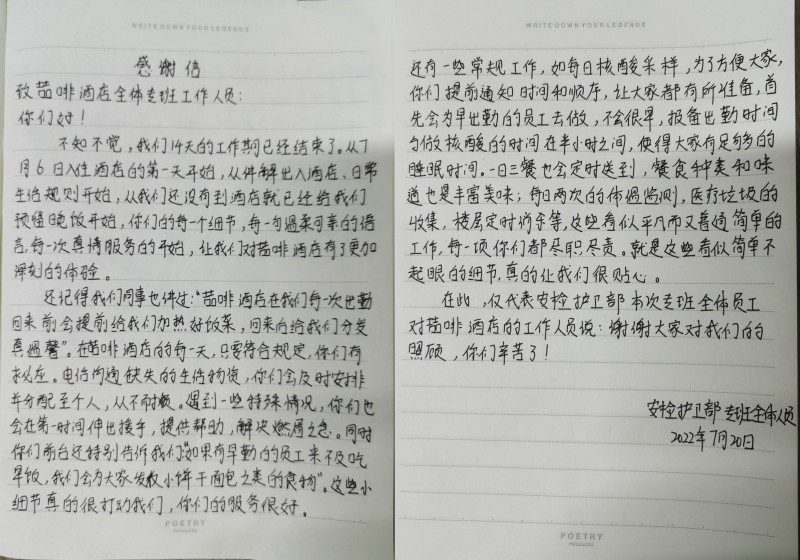 WRITE DOWN YOUR LEGENDS
感谢信
致茴啡酒店全体专班工作人员：
你们好！
不知不觉，我们14天的工作期已经结束了。从7
月6日入住酒店的第一天开始，从讲解出入酒店、日常
生活规则开始，从我们还没有到酒店就已经给我们
预留晚饭开始，你们的每一个细节，每一句温柔可亲的语
言，每一次真情服务的开始，让我们对茴啡酒店有了更加
深刻的体验。
还记得我们同事也作过："茴啡酒店在我们每一次出勤
回来前会提前给我们加热好饭菜，回来向给我们分发
真温馨"。在茴啡酒店的每一天，只要符合规定，你们有
求必应。电话沟通缺失的生活物资，你们会及时安排
并分配至个人，从不耐烦。遇到一些特殊情况，你们也
会在第一时间伸出援手，提供帮助，解决燃眉之急。同时
你们前台还特别告诉我们"如果有早勤的员工来不及吃
早饭，我们会为大家发放小饼干面包之类的食物"。这些小
细节真的很打动我们，你们的服务很好。
POETRY
WRITE DOWN YOUR LEGENDS
还有一些常规工作，如每日核酸采样，为了方便大家，
你们提前通知时间和顺序，让大家都有所准备，首
先会为早出勤的员工去做，不会很早，报备出勤时间
与做核酸的时间在半小时之间，使得大家有足够的
睡眠时间。一日三餐也会定时送到，餐食种类和味
道也是丰富美味；每日两次的体温监测，医疗垃圾的
收集，楼层定时消杀等，这些看似平凡而又普通简单的
工作，每一项你们都尽职尽责。就是这些看似简单不
起眼的细节，真的让我们很贴心。
在此，仅代表安检护卫部本次专班全体员工
对茴啡酒店的工作人员说：谢谢大家对我们的
照顾，你们辛苦了！
安检护卫部专班全体人员
2022年7月20日
POETRY